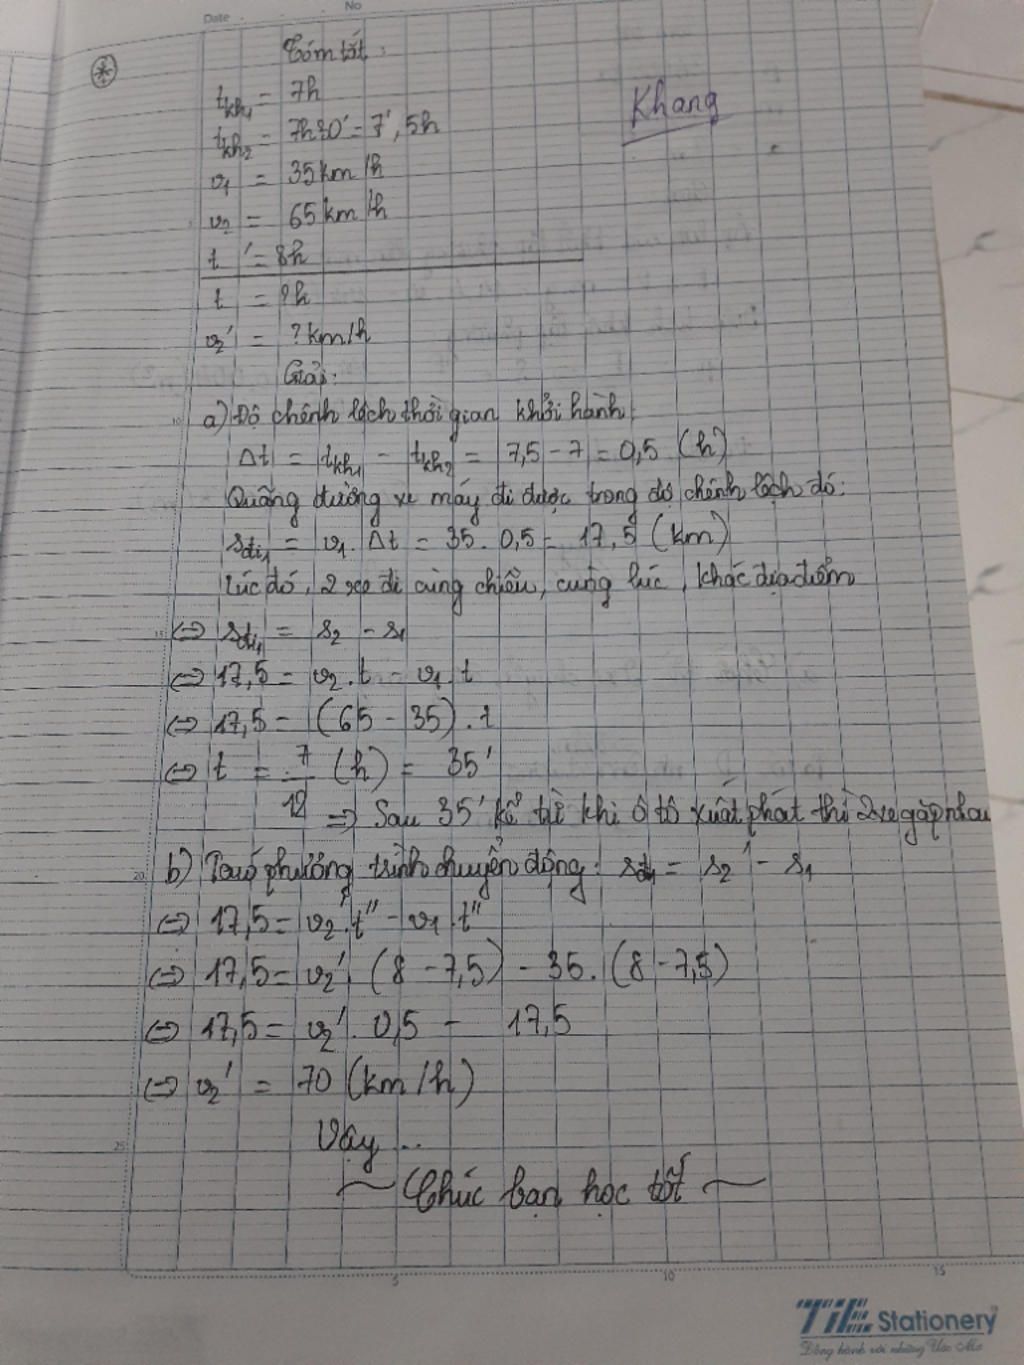 Date
No
Tóm tắt:
Khang
t_kh1 = 7h
t_kh2 = 7h30' = 7',5h
v1 = 35km/h
v2 = 65km/h
t' = 8h
t = ?h
v2' = ?km/h
Giải:
a) Độ chênh lệch thời gian khởi hành
Δt = t_kh1 - t_kh2 = 7,5 - 7 = 0,5 (h)
Quãng đường xe máy đi được trong độ chênh lệch đó:
s_đi1 = v1. Δt = 35. 0,5 = 17,5 (km)
Lúc đó, 2 xe đi cùng chiều, cùng lúc, khác địa điểm
⇔ s_đi1 = s2 - s1
⇔ 17,5 = v2.t - v1.t
⇔ 17,5 = (65 - 35).t
⇔ t = 7/12 (h) = 35'
⇒ Sau 35' kể từ khi ô tô xuất phát thì 2 xe gặp nhau
b) Theo phương trình chuyển động: s_đi1 = s2' - s1
⇔ 17,5 = v2'.t'' - v1.t''
⇔ 17,5 = v2'. (8 - 7,5) - 35. (8 - 7,5)
⇔ 17,5 = v2'. 0,5 - 17,5
⇔ v2' = 70 (km/h)
Vậy ...
~ Chúc bạn học tốt ~
5 10 15
TiE Stationery
Đồng hành với những Ước Mơ